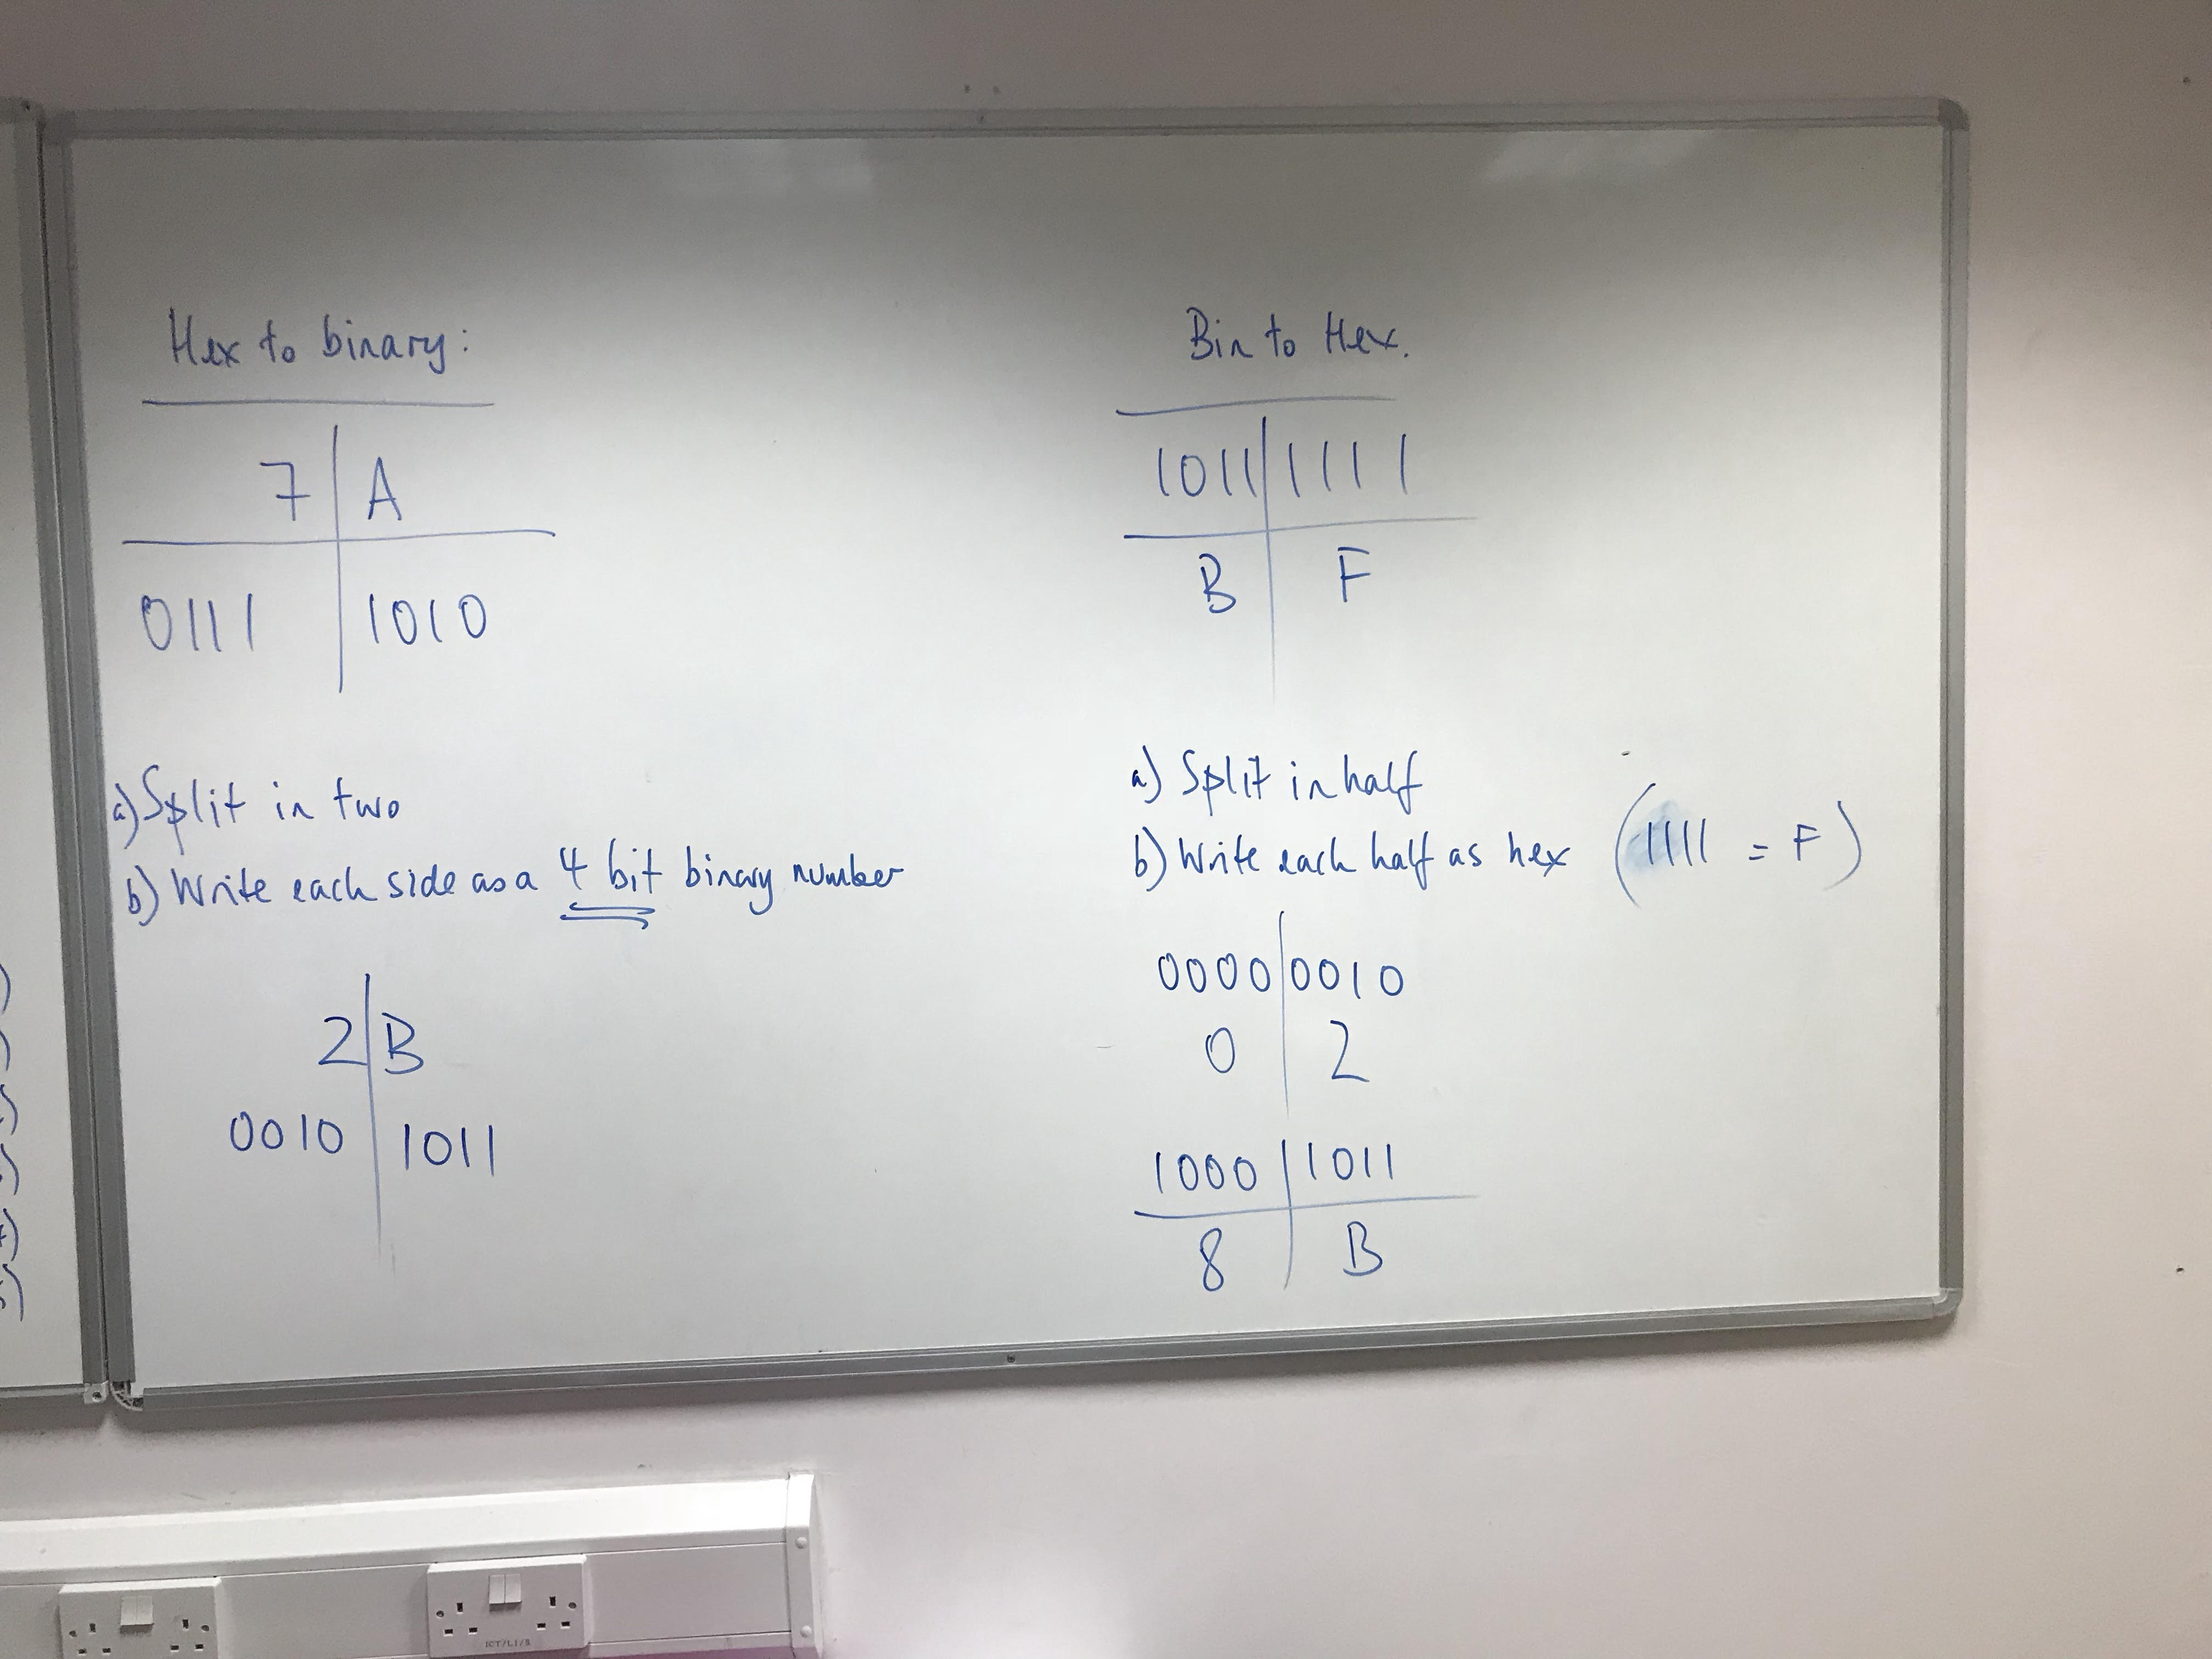 Hex to binary:
7 A
0111 1010
a) Split in two
b) Write each side as a 4 bit binary number
2 B
0010 1011
Bin to Hex.
1011 1111
B F
a) Split in half
b) Write each half as hex (1111 = F)
0000 0010
0 2
1000 1011
8 B
ICT/L1/8